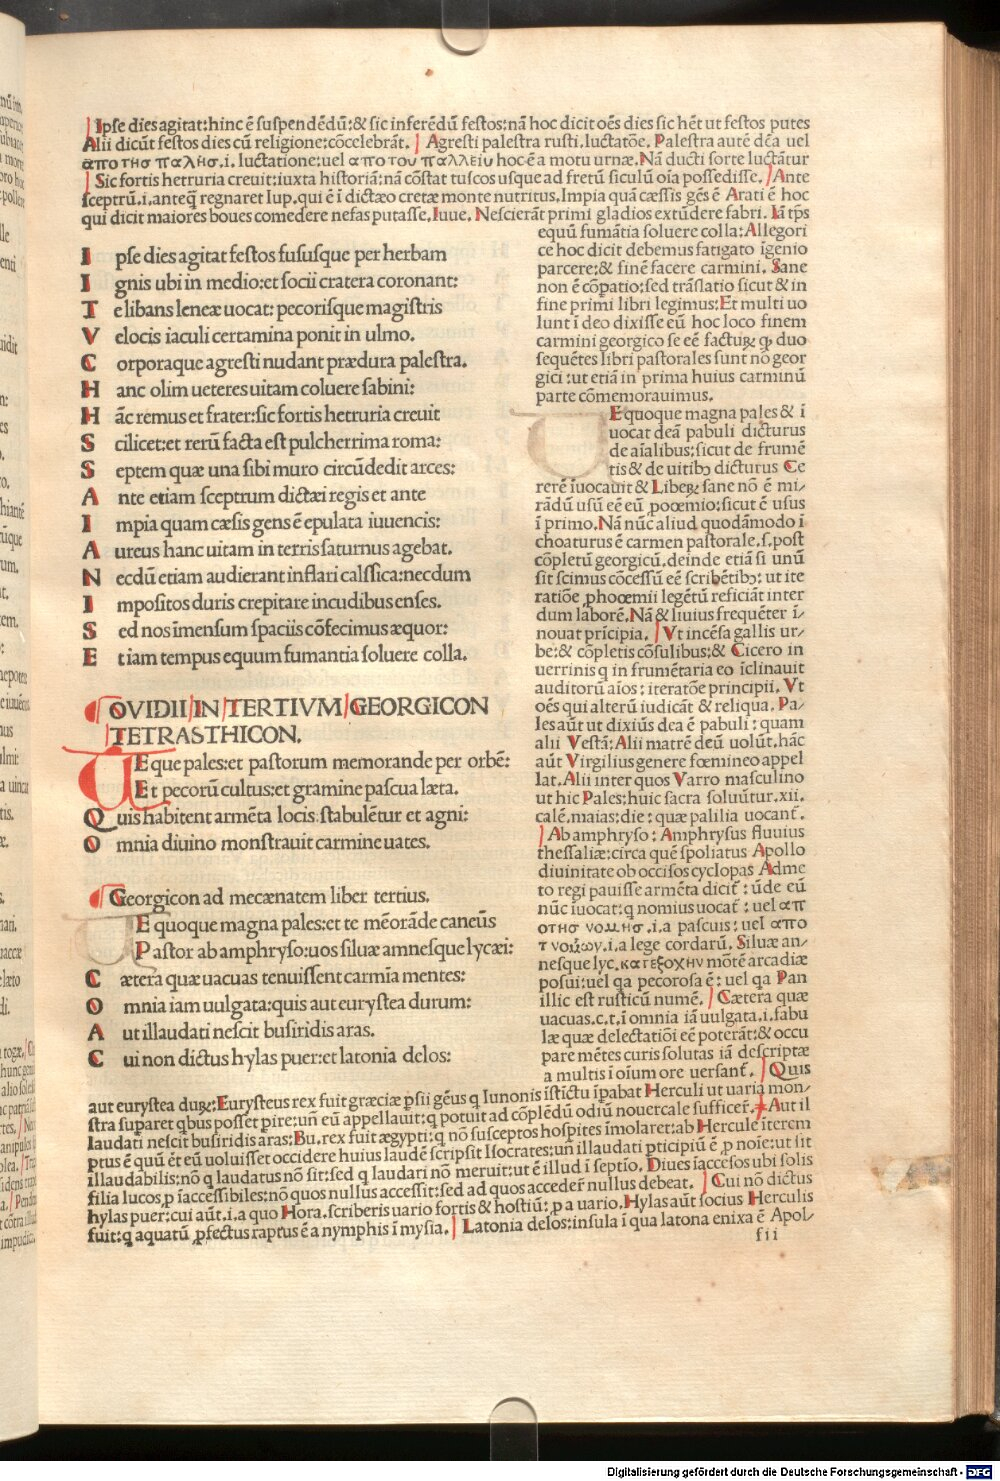 Ipse dies agitat:hinc ē suspendēdū:& sic inferēdū festos:nā hoc dicit oēs dies sic hēt ut festos putes
Alii dicūt festos dies cū religione:cōcelebrāt. Agresti palestra rusti.luctatōe. Palestra autē dc̄a uel
απο τησ παλησ.i.luctatione:uel απο του παλλειν hoc ē a motu urnæ. Nā ducti sorte luctātur
Sic fortis hetruria creuit:iuxta historiā:nā cōstat tuscos usque ad fretū siculū oīa possedisse. Ante
sceptrū.i.anteq̄ regnaret Iup.qui ē ī dictæo cretæ monte nutritus. Impia quā cæsis gēs ē Arati ē hoc
qui dicit maiores boues comedere nefas putasse. Iuue. Nescierāt primi gladios extūdere fabri. Iā tp̄s
Ipse dies agitat festos fususque per herbam
Ignis ubi in medio:et socii cratera coronant:
Te libans lenee uocat: pecorisque magistris
Velocis iaculi certamina ponit in ulmo.
Corporaque agresti nudant prædura palestra.
Hanc olim ueteres uitam coluere sabini:
Hāc remus et frater:sic fortis hetruria creuit
Scilicet:et rerū facta est pulcherrima roma:
Septem quæ una sibi muro circūdedit arces:
Ante etiam sceptrum dictæi regis et ante
Impia quam cæsis gens ē epulata iuuencis:
Aureus hanc uitam in terris saturnus agebat.
Necdū etiam audierant inflari calssica:necdum
Impositos duris crepitare incudibus enses.
Sed nos īmensum spaciis cōfecimus æquor:
Etiam tempus equum fumantia soluere colla.
OVIDII IN TERTIVM GEORGICON
TETRASTHICON.
TEque pales:et pastorum memorande per orbē:
Et pecorū cultus:et gramine pascua læta.
Quis habitent armēta locis stabulētur et agni:
Omnia diuino monstrauit carmine uates.
Georgicon ad mecænatem liber tertius.
TE quoque magna pales:et te mēorāde caneūs
Pastor ab amphryso:uos siluæ amnesque lycæi:
Cætera quæ uacuas tenuissent carmīa mentes:
Omnia iam uulgata:quis aut eurystea durum:
Aut illaudati nescit busiridis aras.
Cui non dictus hylas puer:et latonia delos:
equū fumātia soluere colla:Allegori
ce hoc dicit debemus fatigato īgenio
parcere:& finē facere carmini. Sane
non ē cōpatio:sed trāslatio sicut & in
fine primi libri legimus:Et multi uo
lunt ī deo dixisse eū hoc loco finem
carmini georgico se eē factuꝝ ꝙ duo
sequētes libri pastorales sunt nō geor
gici:ut etiā in prima huius carminū
parte cōmemorauimus.
TE quoque magna pales & ī
uocat deā pabuli dicturus
de aīalibus:sicut de frumē
tis & de uitibꝫ dicturus Ce
rerē iuocauit & Libeꝝ sane nō ē mi-
rādū usū eē eū pooemio:sicut ē usus
ī primo. Nā nūc aliud quodāmodo ī
choaturus ē carmen pastorale.s.post
cōpletū georgicū.deinde etiā si unū
sit scimus cōcessū eē scribētibꝫ:ut ite
ratiōe phooemii legētū reficiāt inter
dum laborē. Nā & liuius frequēter ī-
nouat prīcipia. Vt incēsa gallis ur-
be:& cōpletis cōsulibus:& Cicero in
uerrinis q in frumētaria eo iclinauit
auditorū aīos:iteratōe principii. Vt
oēs qui alterū iudicāt & reliqua. Pa-
les aūt ut dixiūs dea ē pabuli:quam
alii Vestā:Alii matrē deū uolūt.hāc
aūt Virgilius genere fœmineo appel
lat. Alii inter quos Varro masculino
ut hic Pales:huic sacra soluūtur.xii.
calē.maias:die:quæ palilia uocant̄.
Ab amphryso:Amphrysus fluuius
thessaliæ:circa quē spoliatus Apollo
diuinitate ob occisos cyclopas Adme
to regi pauisse armēta dicit̄:ūde eū
nūc iuocat:q nomius uocat̄:uel απ
οτησ νομησ.i.a pascuis:uel απο
τ νομων.i.a lege cordarū. Siluæ an-
nesque lyc.κατεξοχην mōtē arcadiæ
posui:uel qa pecorosa ē:uel qa Pan
illic est rusticū numē. Cætera quæ
uacuas.c.t.ī omnia iā uulgata.i.fabu
læ quæ delectatiōi eē poterāt:& occu
pare mētes curis solutas iā descriptæ
a multis ī oīum ore uersant̄. Quis
aut eurystea duꝝ:Eurysteus rex fuit græciæ p̄sii gēus q Iunonis īstīctu īpabat Herculi ut uaria mon-
stra suparet qbus posset pire:un̄ eū appellauit:q potuit ad cōplēdū odiū nouercale sufficer̄. Aut il
laudati nescit busiridis aras:Bu.rex fuit ægypti:q nō susceptos hospites īmolaret:ab Hercule īterem
ptus ē quū ēt eū uoluisset occidere huius laudē scripsit Isocrates:un̄ illaudati pticipiū ē p noīe:ut sit
illaudabilis:nō q laudatus nō sit:sed q laudari nō meruit:ut ē illud ī septio. Diues īaccesos ubi solis
filia lucos p īaccessibiles:nō quos nullus accessit:sed ad quos acceder̄ nullus debeat. Cui nō dictus
hylas puer:cui aūt.i.a quo Hora.scriberis uario fortis & hostiū:p a uario. Hylas aūt socius Herculis
fuit:q aquatū pfectus raptus ē a nymphis ī mysia. Latonia delos:insula ī qua latona enixa ē Apol-
fii
Digitalisierung gefördert durch die Deutsche Forschungsgemeinschaft - DFG